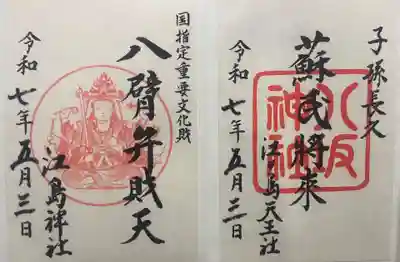 国指定重要文化財
八臂弁財天
江島神社
令和七年五月三日
子孫長久
蘇民將來
八坂
神社
江ノ島天王社
令和七年五月三日